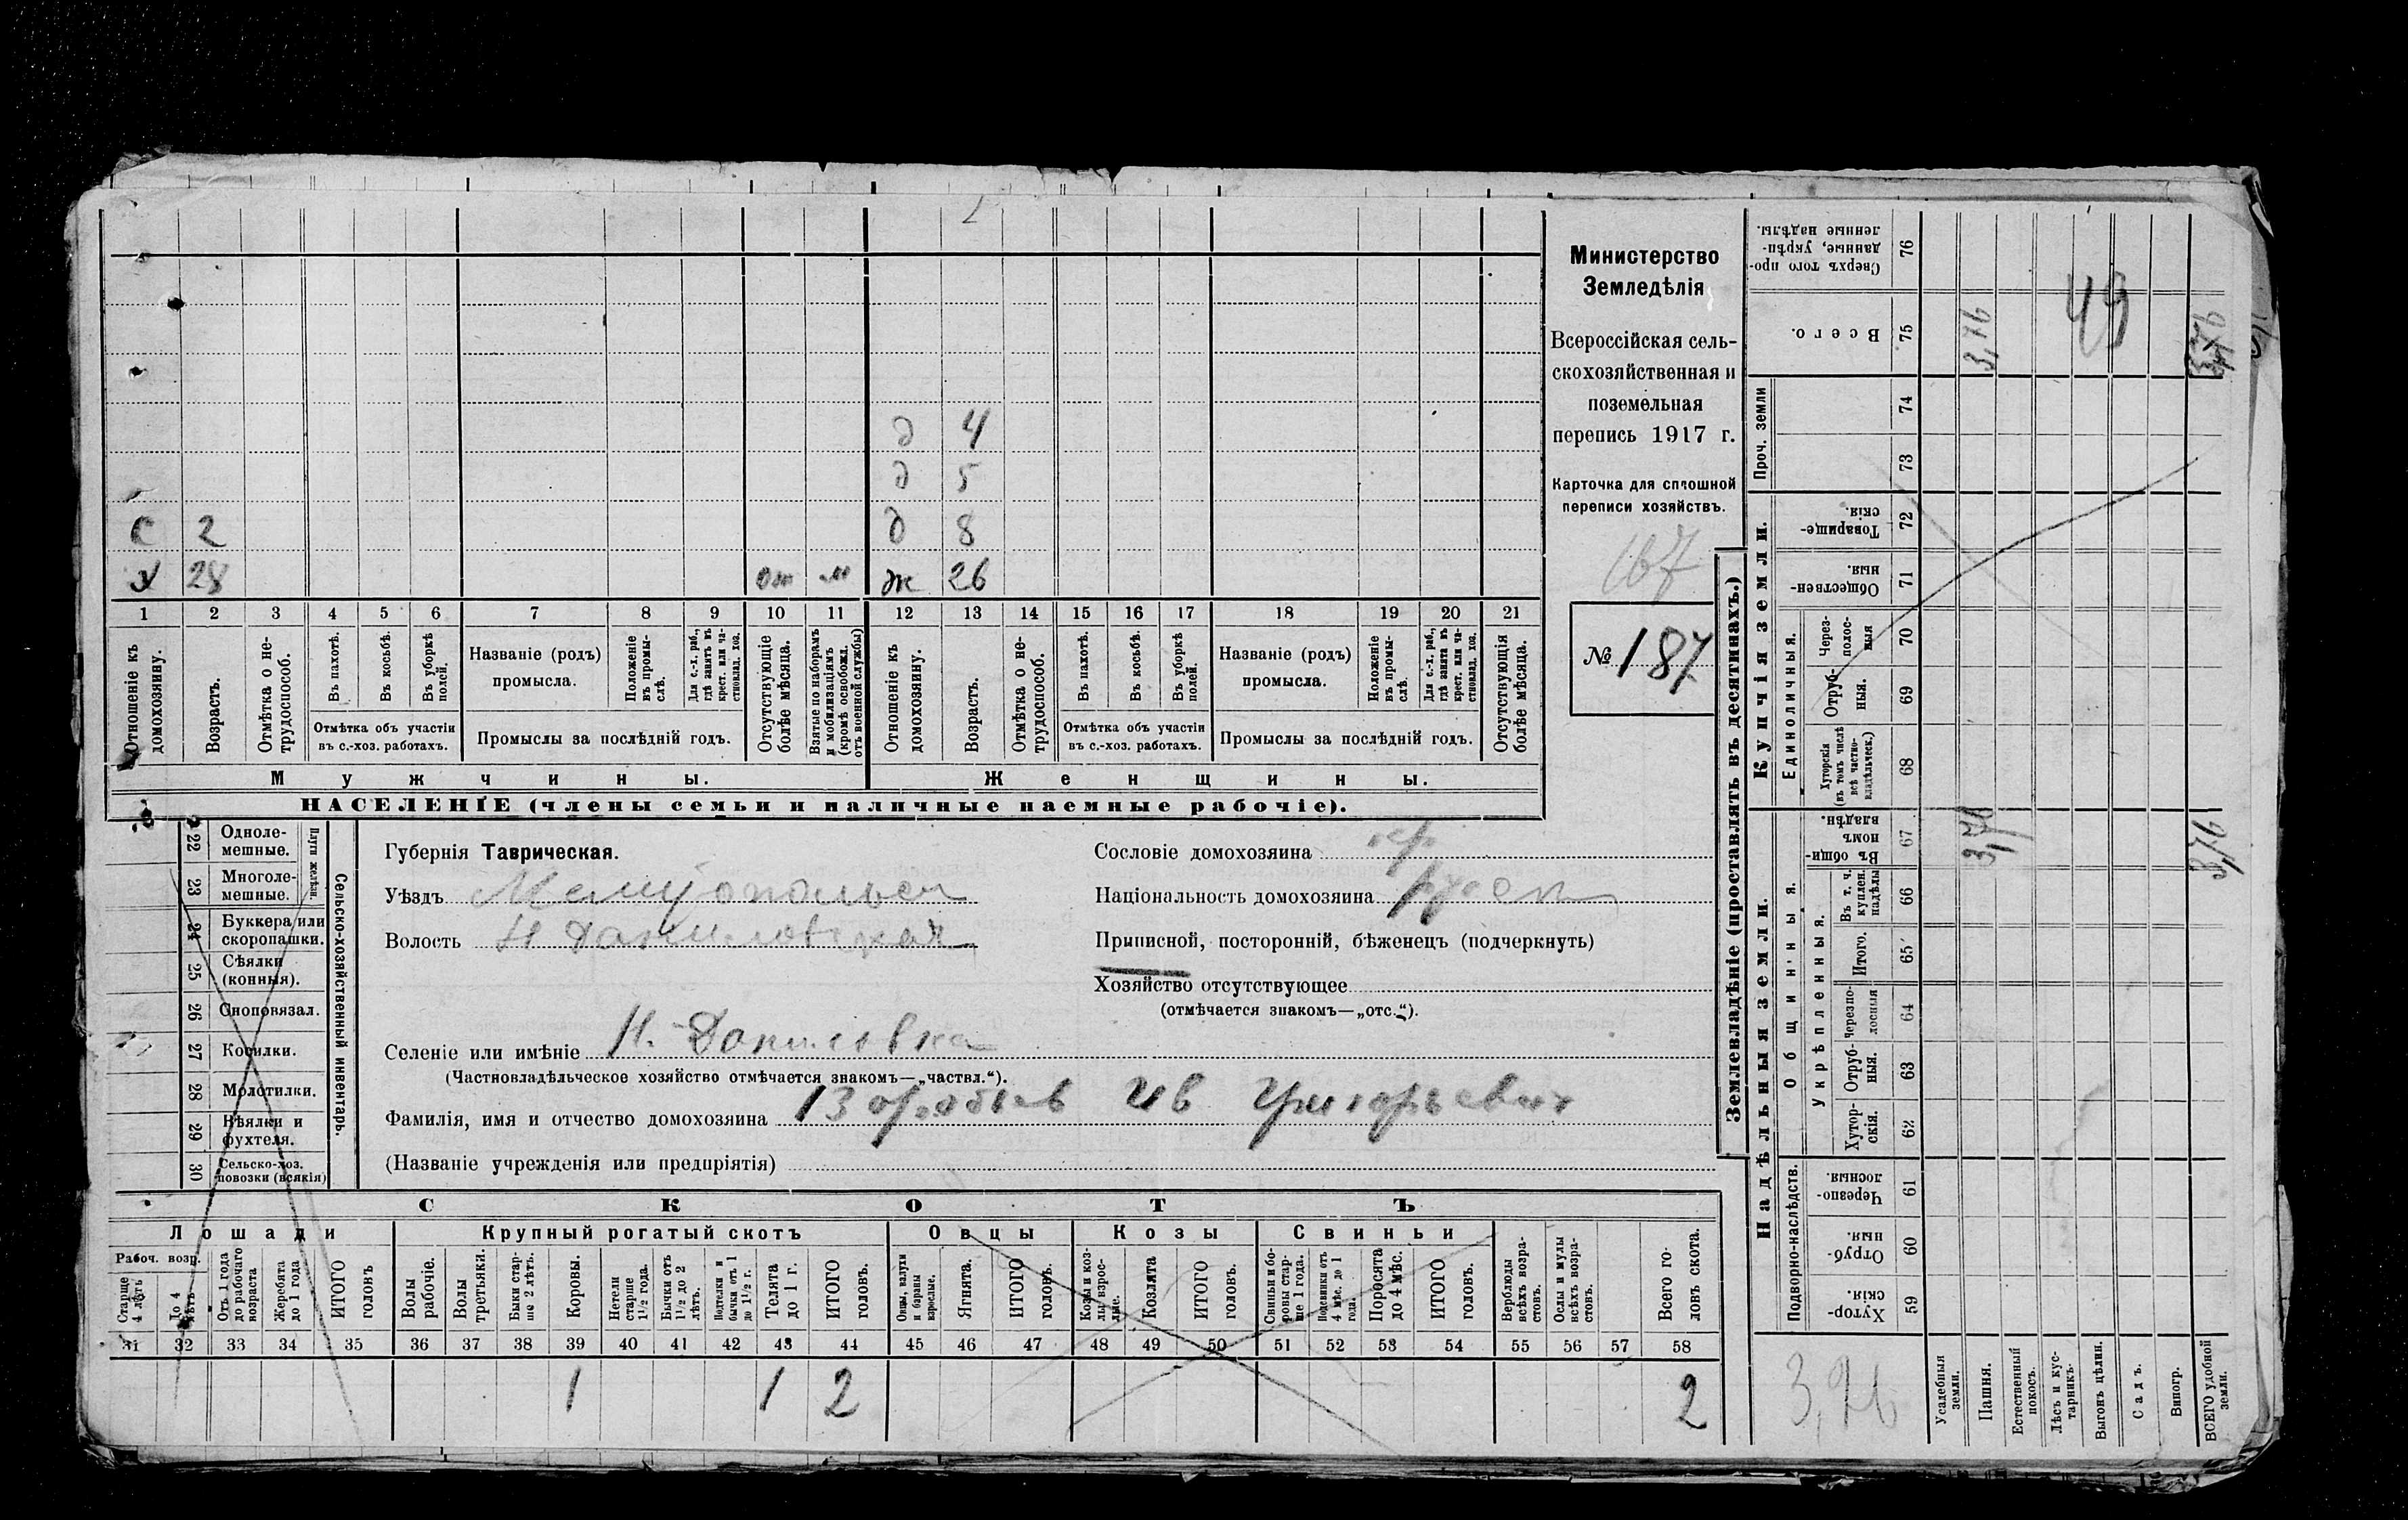 Министерство
Земледѣлія
Всероссійская сель-
скохозяйственная и
поземельная
перепись 1917 г.
Карточка для сплошной
переписи хозяйствъ.
167
№ 187
д 4
д 5
с 2 д 8
х 28 ж 26
1 2 3 4 5 6 7 8 9 10 11 12 13 14 15 16 17 18 19 20 21
Отношеніе къ домохозяину.
Возрастъ.
Отмѣтка о не-трудоспособ.
Въ пахотѣ.
Въ косьбѣ.
Въ уборкѣ полей.
Отмѣтка объ участіи
въ с.-хоз. работахъ.
Названіе (родъ)
промысла.
Положеніе въ промы-слѣ.
Для с.-х. раб., гдѣ занятъ въ крест. или ча-стновлад. хоз.
Промыслы за послѣдній годъ.
Отсутствующіе болѣе мѣсяца.
Взятые по наборамъ и мобилизаціямъ (кромѣ освобожд. отъ военной службы)
Отношеніе къ домохозяину.
Возрастъ.
Отмѣтка о не-трудоспособ.
Въ пахотѣ.
Въ косьбѣ.
Въ уборкѣ полей.
Отмѣтка объ участіи
въ с.-хоз. работахъ.
Названіе (родъ)
промысла.
Положеніе въ промы-слѣ.
Для с.-х. раб., гдѣ занята въ крест. или ча-стновлад. хоз.
Промыслы за послѣдній годъ.
Отсутствующія болѣе мѣсяца.
Мужчины.
Женщины.
НАСЕЛЕНІЕ (члены семьи и наличные наемные рабочіе).
22 Одноле-мешные.
23 Многоле-мешные.
Плуги желѣзн.
24 Буккера или скоропашки.
25 Сѣялки (конныя).
26 Сноповязал.
27 Косилки.
28 Молотилки.
29 Вѣялки и фухтеля.
30 Сельско-хоз. повозки (всякія)
Сельско-хозяйственный инвентарь.
Губернія Таврическая.
Уѣздъ Мелитопольск
Волость Н Даниловская
Сословіе домохозяина кр
Національность домохозяина русск
Приписной, посторонній, бѣженецъ (подчеркнуть)
Хозяйство отсутствующее
(отмѣчается знакомъ—„отс.“).
Селеніе или имѣніе Н. Даниловка
(Частновладѣльческое хозяйство отмѣчается знакомъ—„частвл.“).
Фамилія, имя и отчество домохозяина Ив Григорьевич
(Названіе учрежденія или предпріятія)
СКОТЪ
Лошади
Крупный рогатый скотъ
Овцы
Козы
Свиньи
Рабоч. возр.
Старше 4 лѣтъ
До 4 лѣтъ
Отъ 1 года до рабочаго возраста
Жеребята до 1 года
ИТОГО головъ
Волы рабочіе.
Волы третьяки.
Быки стар-ше 2 лѣтъ.
Коровы.
Нетели старше 1 1/2 года.
Бычки отъ 1 1/2 до 2 лѣтъ.
Подтелки и бычки отъ 1 до 1 1/2 г.
Телята до 1 г.
ИТОГО головъ.
Овцы, валухи и бараны взрослые.
Ягнята.
ИТОГО головъ.
Козы и коз-лы взрос-лые.
Козлята
ИТОГО головъ.
Свиньи и бо-ровы стар-ше 1 года.
Подсвинки отъ 4 мѣс. до 1 года.
Поросята до 4 мѣс.
ИТОГО головъ.
Верблюды всѣхъ возра-стовъ.
Ослы и мулы всѣхъ возра-стовъ.
Всего го-ловъ скота.
31 32 33 34 35 36 37 38 39 40 41 42 43 44 45 46 47 48 49 50 51 52 53 54 55 56 57 58
1 1 2 2
Землевладѣніе (проставлять въ десятинахъ.)
Надѣльныя земли.
Купчія земли.
Проч. земли
Подворно-наслѣдств.
Общинныя.
Укрѣпленныя.
Единоличныя.
Сверхъ того про-данные, укрѣп-ленные надѣлы. 76
Всего. 75 3,76 49 3,76
74
73
Товарище-скія. 72
Обществен-ныя. 71
Черезполос-ныя 70
Отруб-ныя. 69
Хуторскія (въ томъ числѣ всѣ частно-владѣльческ.) 68
Въ общин-номъ владѣн. 67 3,76 3,76
Въ т. ч. куплен. надѣлы 66
Итого. 65
Черезпо-лосныя 64
Отруб-ныя. 63
Хутор-скія. 62
Черезпо-лосныя. 61
Отруб-ныя. 60
Хутор-скія. 59
3,76
Усадебныя земли.
Пашня.
Естественный покосъ.
Лѣсъ и кус-тарникъ.
Выгонъ цѣлин.
Садъ.
Виногр.
ВСЕГО удобной земли.